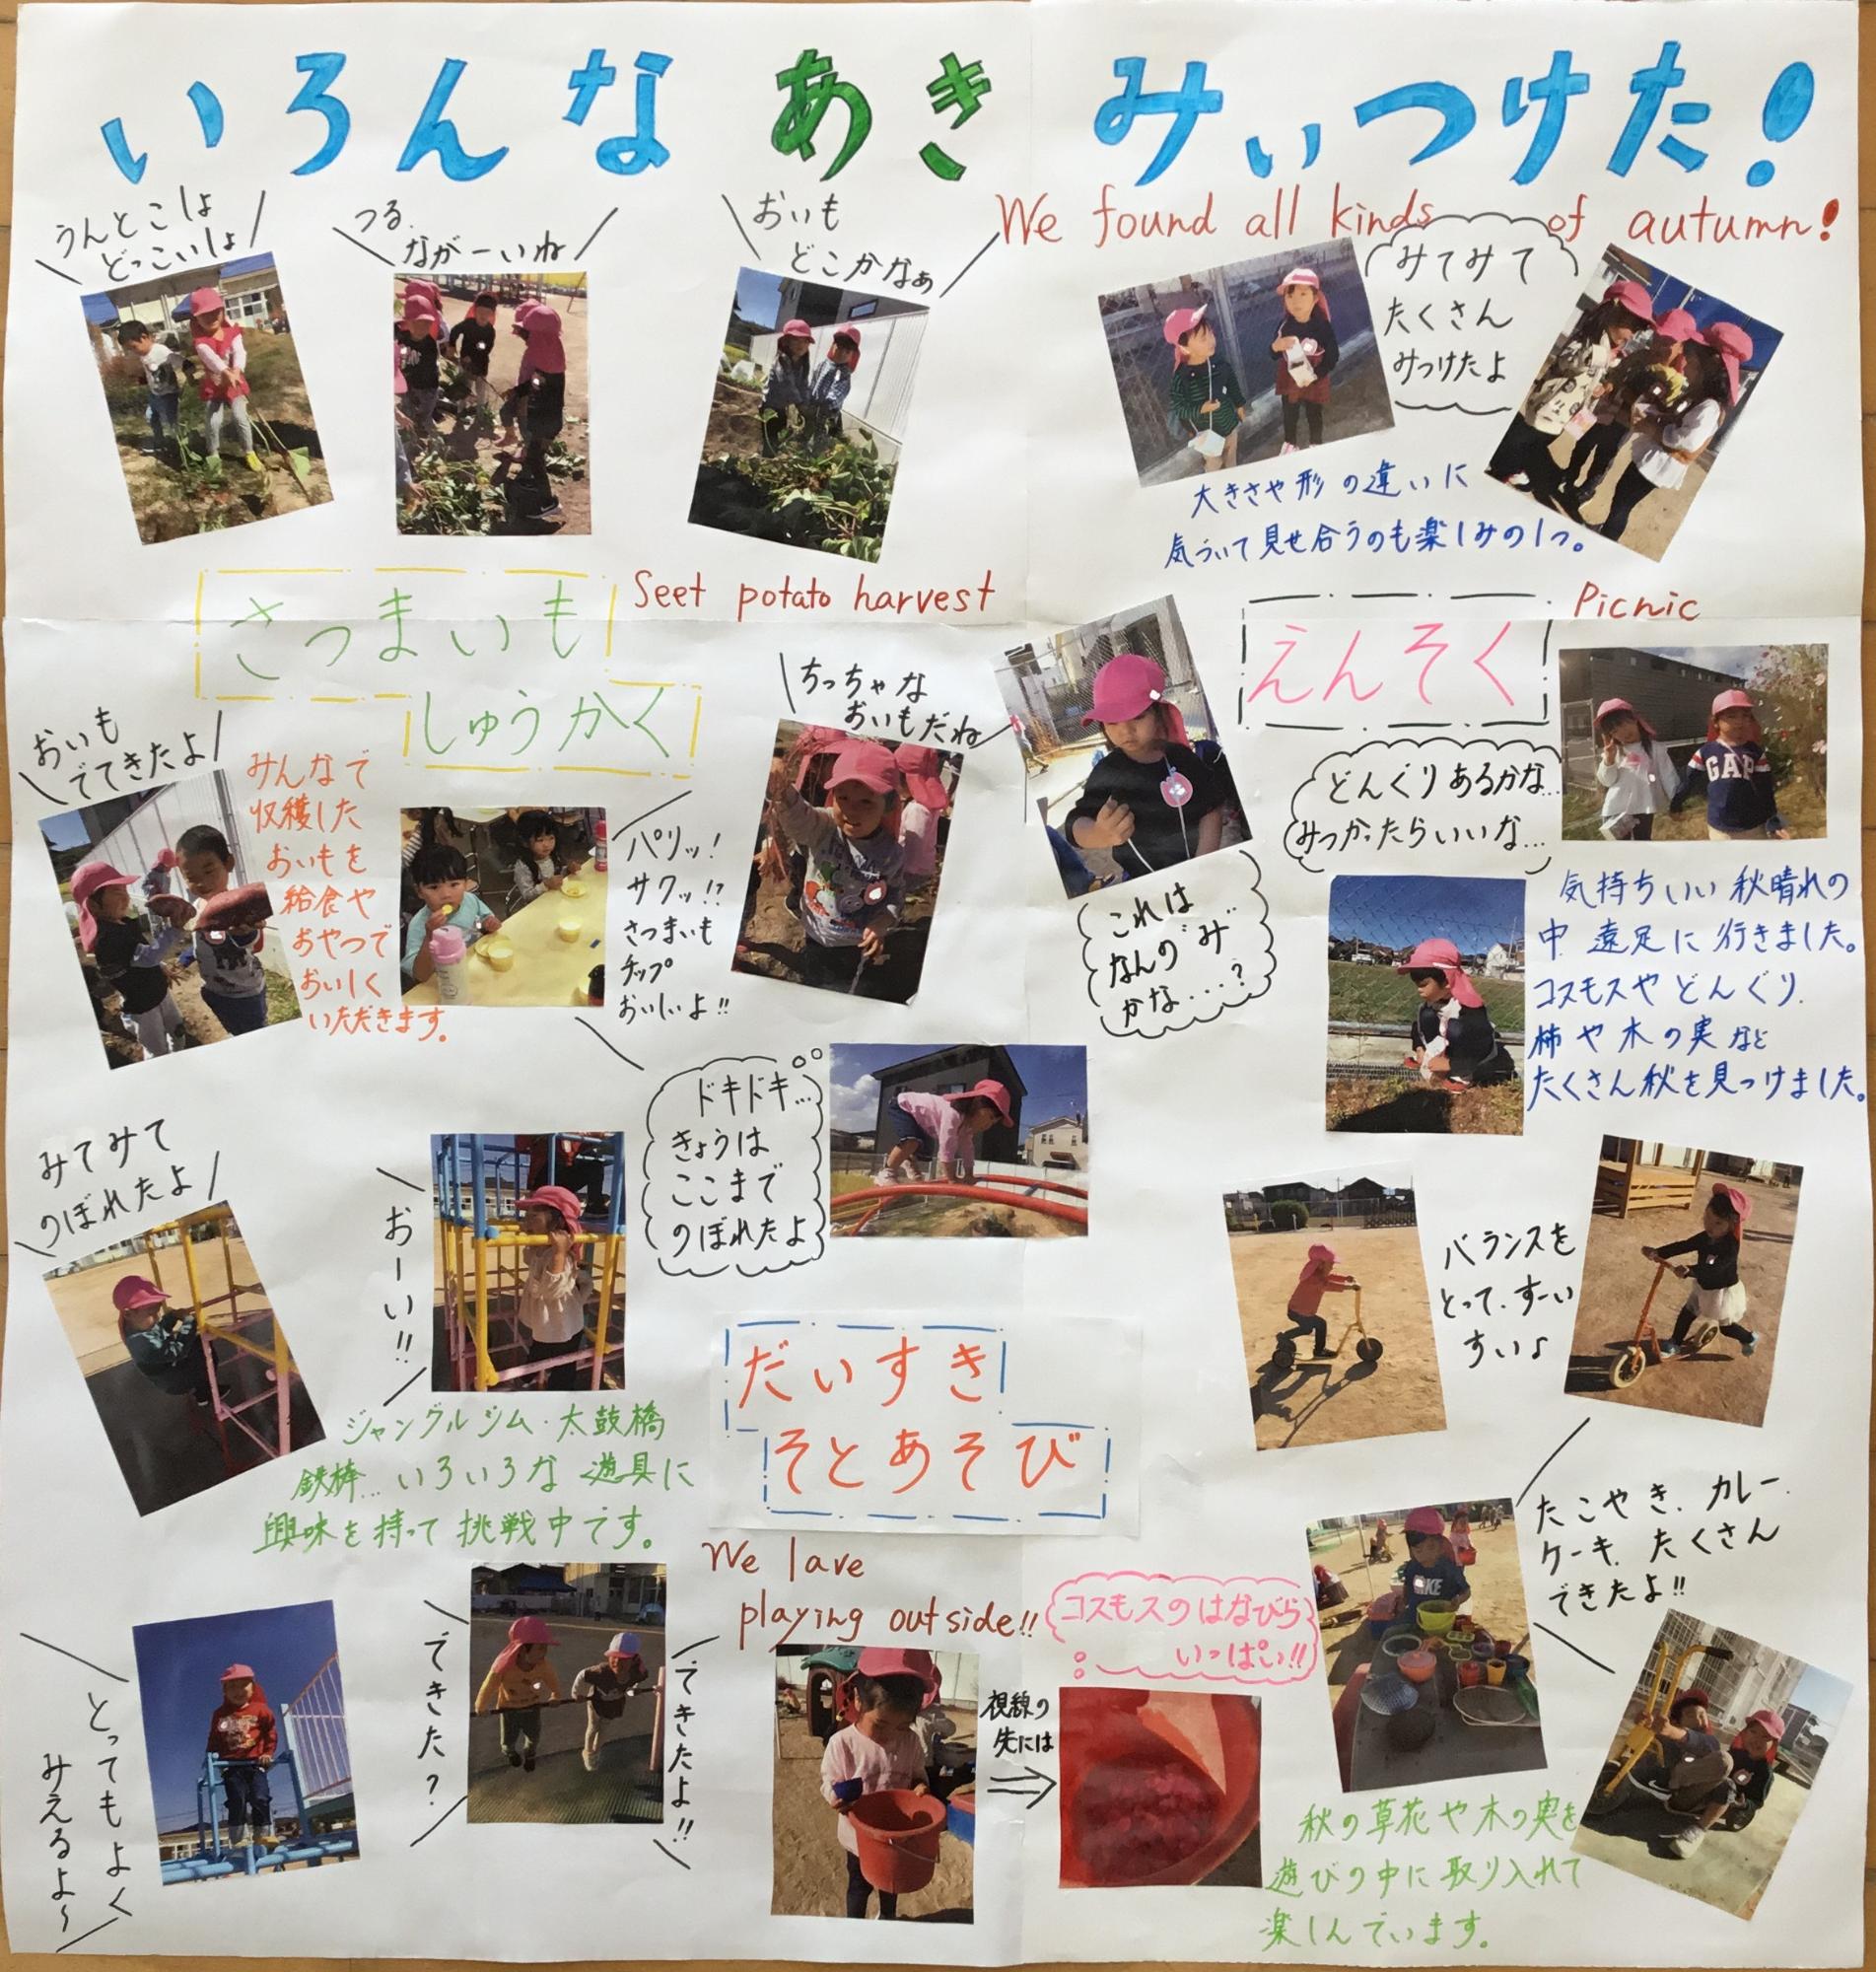 いろんな あき みぃつけた!
We found all kinds of autumn!
うんとこしょ
どっこいしょ
つる
ながーいね
おいも
どこかなぁ
みてみて
たくさん
みつけたよ
大きさや形の違いに
気づいて見せ合うのも楽しみの1つ。
さつまいも
しゅうかく
Seet potato harvest
えんそく
Picnic
おいも
でてきたよ
みんなで
収穫した
おいもを
給食や
おやつで
おいしく
いただきます。
パリッ!
サクッ!?
さつまいも
チップ
おいしいよ!!
ちっちゃな
おいもだね
これは
なんの"み"
かな....?
どんぐりあるかな...
みつかったらいいな...
GAP
気持ちいい秋晴れの
中、遠足に行きました。
コスモスやどんぐり、
柿や木の実など
たくさん秋を見つけました。
みてみて
のぼれたよ
おーい!!
ドキドキ...
きょうは
ここまで
のぼれたよ
バランスを
とって、すーい
すい♪
ジャングルジム・太鼓橋
鉄棒...いろいろな遊具に
興味を持って挑戦中です。
だいすき
そとあそび
We lave
playing outside!!
とってもよく
みえるよ〜
できた?
できたよ!!
視線の
先には
コスモスのはなびら
いっぱい!!
たこやき、カレー、
ケーキ、たくさん
できたよ!!
秋の草花や木の実を
遊びの中に取り入れて
楽しんでいます。